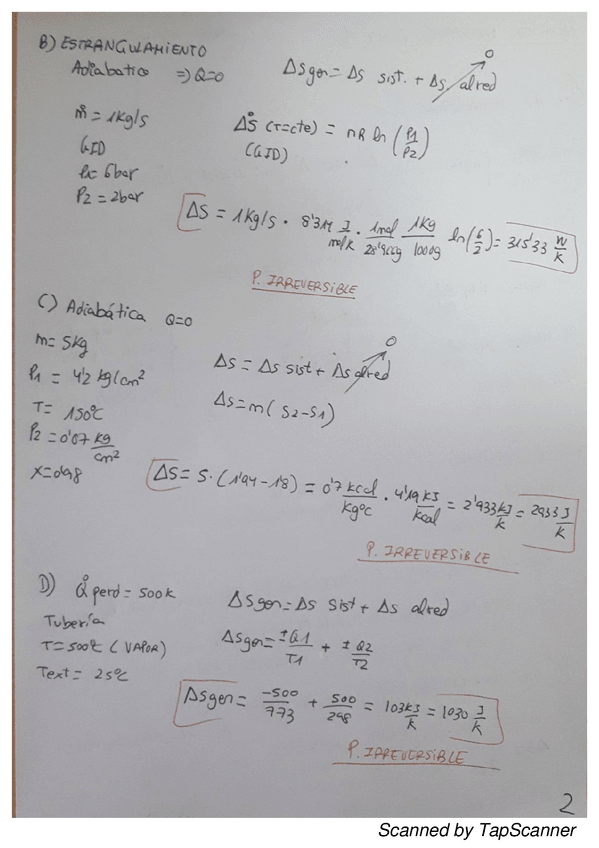 B) ESTRANGULAMIENTO
Adiabatico => Q=0
ΔSgen = ΔS sist. + ΔS alred 0
ṁ = 1Kg/s
GID
P1 = 6bar
P2 = 2bar
ΔṠ (T=cte) = nR ln (P1/P2)
(GID)
ΔS = 1Kg/s · 8'314 J/molK · 1mol/28'966g · 1Kg/1000g ln(6/2) = 315'33 W/K
P. IRREVERSIBLE
C) Adiabática Q=0
m= 5Kg
P1 = 4'2 kg/cm²
T= 150ºC
P2 = 0'07 kg/cm²
X=0'98
ΔS = ΔS sist + ΔS alred 0
ΔS = m(S2-S1)
ΔS= 5·(1'94-1'8) = 0'7 kcal/kgºC · 4'19 kJ/kcal = 2'933 kJ/K = 2933 J/K
P. IRREVERSIBLE
D) Q̇ perd = 500K
Tubería
T= 500ºC (VAPOR)
Text = 25ºC
ΔSgen = ΔS sist + ΔS alred
ΔSgen = ±Q1/T1 + ±Q2/T2
ΔSgen = -500/773 + 500/298 = 103 kJ/K = 1030 J/K
P. IRREVERSIBLE
2
Scanned by TapScanner